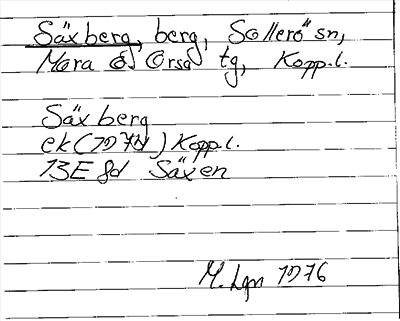 Säxberg, berg, Sollerö sn,
Mora o Orsa tg, Kopp.l.
Säxberg
ek (1974) Kopp.l.
13E 8d Säxen
M. Lgn 1976